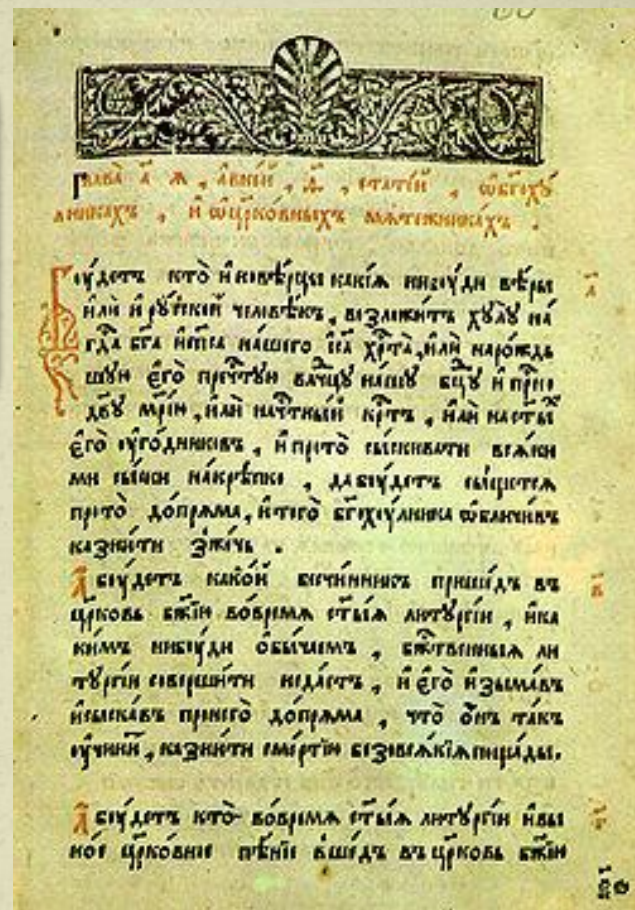 Глава̀ а҃ я, а вне́й, ѳ҃, стате́й, ѡ бг҃оху́
лникахъ, и҆ ѡ цр҃ко́вныхъ мѧте́жникахъ.
Бꙋ́детъ кто̀ и҆нове́рцы каки́ѧ нибꙋ́ди вѣ́ры
а҃
и҆лѝ и҆ рꙋ́ской человѣ́къ, возложи́тъ хꙋлꙋ̀ на́
гдⷭ҇а бг҃а и҆ сп҃са на́шего і҆с҃а хрⷭ҇та̀, и҆лѝ наро́ждь
шꙋю є҆го̀ пречⷭ҇тꙋю влⷣчцꙋ на́шꙋ бцⷣꙋ и҆ прⷭ҇но
дв҃ꙋ мр҃і́ю, и҆лѝ на чⷭ҇тны́й крⷭ҇тъ, и҆лѝ на ст҃ы́хъ
є҆го̀ ᲂу҆го́дниковъ, и҆ прото̀ сы́скивати всѧ́ки
ми сы́ски накрѣ́пко, да бꙋ́детъ сы́щетсѧ
прото̀ до́прѧма, и҆ того̀ бг҃охꙋ́лника ѡ҆бличи́въ
казни́ти зже́чь.
А҆ бꙋ́детъ како́й безчи́нникъ прише́дъ въ
в҃
цр҃ковь бж҃ію во́времѧ ст҃ы́ѧ литꙋргі́и, и҆ ка
ки́мъ нибꙋ́ди ѻ҆бы́чаемъ, бжⷭ҇твенныѧ ли
тꙋргі́и соверши́ти неда́стъ, и҆ є҆го̀ и҆зыма́въ
и҆ сыска́въ пронего̀ до́прѧма, что̀ ѻ҆́нъ та́къ
ᲂу҆чини́тъ, казни́ти сме́ртію безовсѧ́кіѧ поща́ды.
А҆ бꙋ́детъ кто̀ во́времѧ ст҃ы́ѧ литꙋргі́и и҆ вы
г҃
но́е цр҃ко́вное пѣ́ніе вше́дъ въ цр҃ковь бж҃ію